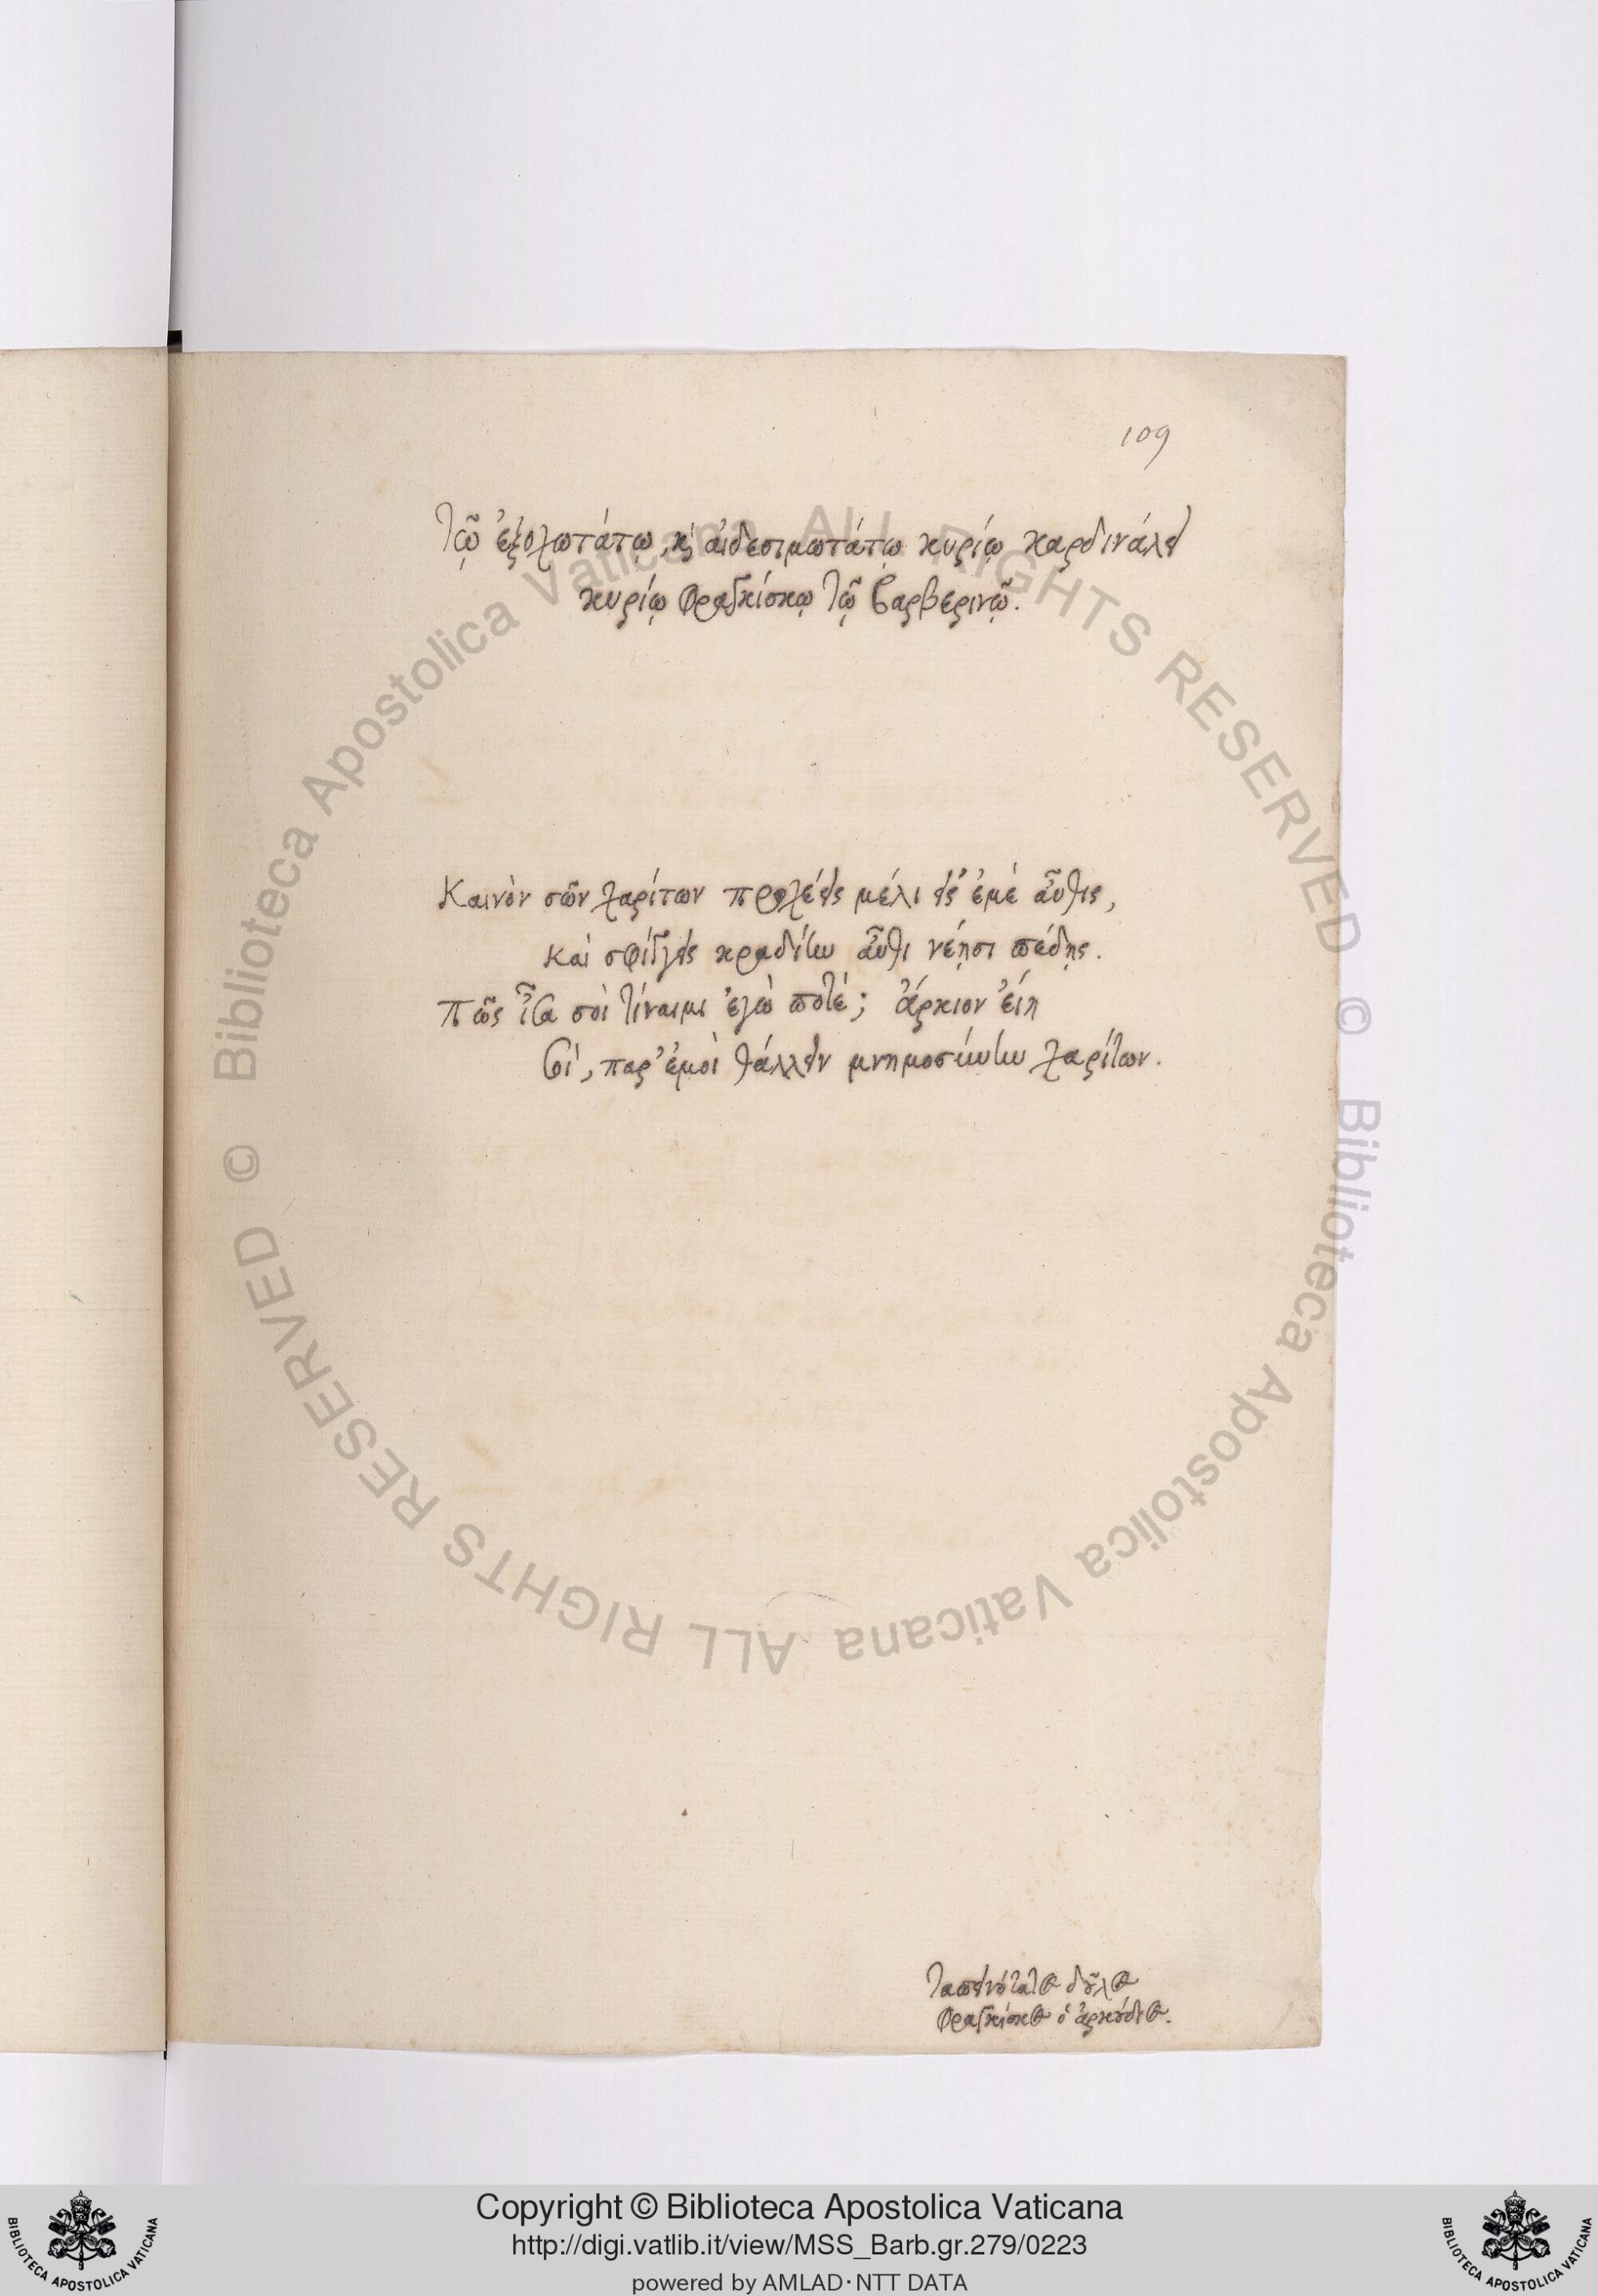 109
Τῷ ἐξοχωτάτῳ, καὶ αἰδεσιμωτάτῳ κυρίῳ καρδινάλει
κυρίῳ Φραγκίσκῳ τῷ βαρβερινῷ.
Καινὸν σῶν χαρίτων προχέεις μέλι εἰς ἐμὲ αὖθις,
Καὶ σφίγγεις κραδίην αὖθι νέῃσι πέδῃς.
Πῶς ἶσα σοὶ τίναιμι ἐγὼ ποτέ; ἄρκιον εἴη
Σοὶ, παρ' ἐμοὶ θάλλειν μνημοσύνην χαρίτων.
Ταπεινότατος δοῦλος
Φραγκίσκος ὁ ἀρκούδιος.
Copyright © Biblioteca Apostolica Vaticana
http://digi.vatlib.it/view/MSS_Barb.gr.279/0223
powered by AMLAD·NTT DATA
BIBLIOTECA APOSTOLICA VATICANA
BIBLIOTECA APOSTOLICA VATICANA
© Biblioteca Apostolica Vaticana ALL RIGHTS RESERVED © Biblioteca Apostolica Vaticana ALL RIGHTS RESERVED